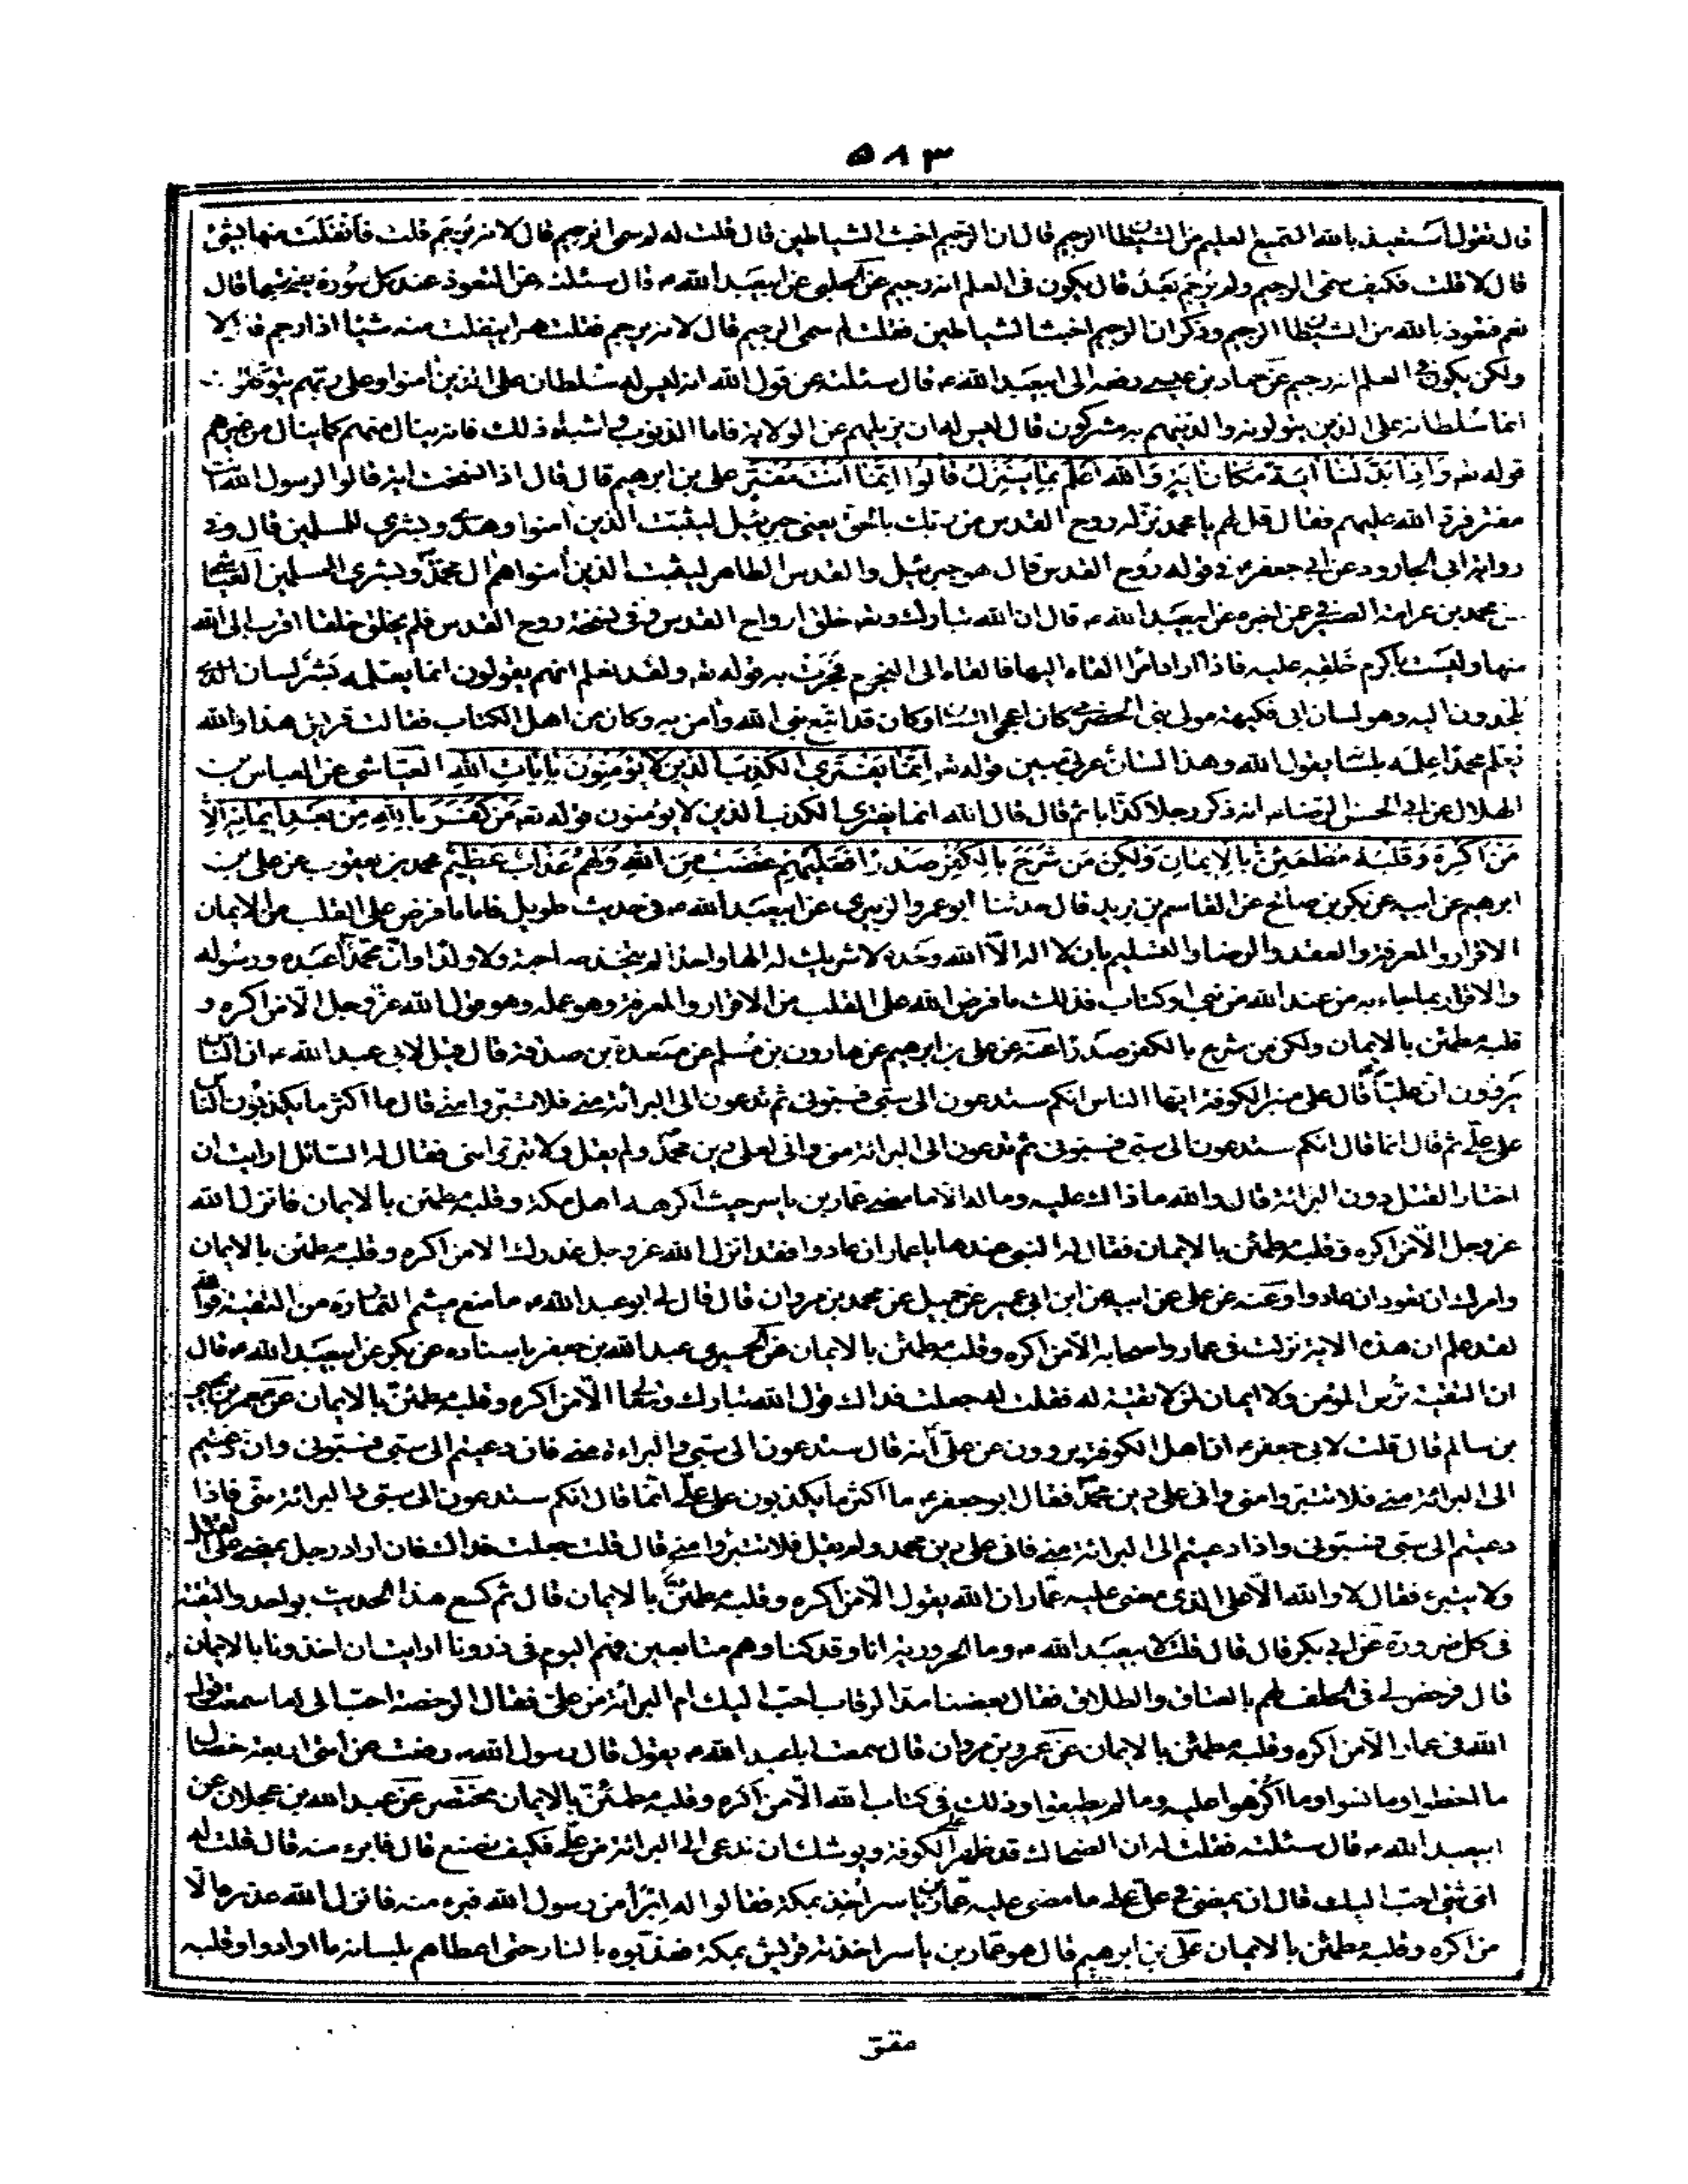 ٥٨٣
قال تقول استعيذ بالله السميع العليم من الشيطان الرجيم قال ان الرجيم اخبث الشياطين قال قلت له لم سمى الرجيم قال لانه يرجم قلت فانفلت منها بشئ
قال لا قلت فكيف سمى الرجيم ولم يرجم بعد قال يكون فى العلم انه رجيم عن الحلبى عن ابيعبد الله ع قال سئلته عن التعوذ عند كل سورة نفتتحها قال
نعم فتعوذ بالله من الشيطان الرجيم وذكر ان الرجيم اخبث الشياطين فقلت لم سمى الرجيم قال لانه يرجم فقلت هل ينفلت منه شيئا اذا رجم قال لا
ولكن يكون فى العلم انه رجيم عن حماد بن عيسى رفعه الى ابيعبد الله ع قال سئلته عن قول الله انه ليس له سلطان على الذين امنوا وعلى ربهم يتوكلون
انما سلطانه على الذين يتولونه والذينهم به مشركون قال ليس له ان يزيلهم عن الولاية فاما الذنوب واشباه ذلك فانه ينال منهم كما ينال من غيرهم
قوله تع وَاِذا بَدَّلْنا ايَةً مَكانَ ايَةٍ وَاللهُ اَعْلَمُ بِما يُنَزِّلُ قالُوا اِنَّما اَنْتَ مُفْتَرٍ على بن ابرهيم قال قال اذا نسخت اية قالوا لرسول الله انت
مفتر فرد الله عليهم فقال قل لهم يا محمد نزله روح القدس من ربك بالحق يعنى جبرئيل ليثبت الذين امنوا وهدى وبشرى للمسلمين قال وفى
رواية ابى الجارود عن ابى جعفر ع فى قوله روح القدس قال هو جبرئيل والقدس الطاهر ليثبت الذين امنوا هم ال محمد وبشرى للمسلمين العياشى
عن محمد بن عرامة الصيرفى عمن اخبره عن ابيعبد الله ع قال ان الله تبارك وتع خلق ارواح القدس وفى نسخة روح القدس فلم يخلق خلقا اقرب الى الله
منها وليست باكرم خلقه عليه فاذا اراد امرا القاه اليها فالقاه الى النجوم فجرت به قوله تع ولقد نعلم انهم يقولون انما يعلمه بشر لسان الذى
يلحدون اليه وهو لسان ابى فكيهة مولى بنى الحضرمى كان اعجمى اللسان وكان قد اتبع نبى الله وامن به وكان من اهل الكتاب فقالت قريش هذا والله
يعلم محمدا علمه بلسانه يقول الله وهذا لسان عربى مبين قوله تع اِنَّما يَفْتَرِي الْكَذِبَ الَّذينَ لا يُؤْمِنُونَ بِاياتِ اللهِ العياشى عن العباس بن
الهلال عن ابى الحسن الرضا ع انه ذكر رجلا كذابا ثم قال قال الله انما يفترى الكذب الذين لا يؤمنون قوله تع مَنْ كَفَرَ بِاللهِ مِنْ بَعْدِ ايمانِهِ اِلّا
مَنْ اُكْرِهَ وَقَلْبُهُ مُطْمَئِنٌّ بِالْايمانِ وَلكِنْ مَنْ شَرَحَ بِالْكُفْرِ صَدْرًا فَعَلَيْهِمْ غَضَبٌ مِنَ اللهِ وَلَهُمْ عَذابٌ عَظيمٌ محمد بن يعقوب عن على بن
ابرهيم عن ابيه عن بكر بن صالح عن القاسم بن بريد قال حدثنا ابو عمرو الزبيرى عن ابيعبد الله ع فى حديث طويل فاما ما فرض على القلب من الايمان
الاقرار والمعرفة والعقد والرضا والتسليم بان لا اله الا الله وحده لا شريك له الها واحدا لم يتخذ صاحبة ولا ولدا وان محمدا عبده ورسوله
والاقرار بما جاء به من عند الله من نبى او كتاب فذلك ما فرض الله على القلب من الاقرار والمعرفة وهو عمله وهو قول الله عز وجل الا من اكره و
قلبه مطمئن بالايمان ولكن من شرح بالكفر صدرا عنه عن على بن ابرهيم عن هارون بن مسلم عن مسعدة بن صدقة قال قيل لابى عبد الله ع ان الناس
يروون ان عليا قال على منبر الكوفة ايها الناس انكم ستدعون الى سبى فسبونى ثم تدعون الى البرائة منى فلا تتبروا منى قال ما اكثر ما يكذبون الناس
على على ثم قال انما قال انكم ستدعون الى سبى فسبونى ثم تدعون الى البرائة منى وانى لعلى دين محمد ولم يقل ولا تبروا منى فقال له السائل ارايت ان
اختار القتل دون البرائة قال والله ما ذاك عليه وماله الا ما مضى عمار بن ياسر حيث اكرهه اهل مكة وقلبه مطمئن بالايمان فانزل الله
عز وجل الا من اكره وقلبه مطمئن بالايمان فقال له النبى عندها يا عمار ان عادوا فعد انزل الله عز وجل عذرك الا من اكره وقلبه مطمئن بالايمان
وامرك ان تعود ان عادوا وعنه عن على عن ابيه عن ابن ابى عمير عن جميل عن محمد بن مروان قال قال لى ابو عبد الله ع ما منع ميثم التمار ره من التقية فوالله
لقد علم ان هذه الاية نزلت فى عمار واصحابه الا من اكره وقلبه مطمئن بالايمان عن الحميرى عبد الله بن جعفر باسناده عن بكر عن ابيعبد الله ع قال
ان التقية ترس المؤمن ولا ايمان لمن لا تقية له فقلت له جعلت فداك قول الله تبارك وتعالى الا من اكره وقلبه مطمئن بالايمان عن معمر بن يحيى
بن سالم قال قلت لابى جعفر ع ان اهل الكوفة يروون عن على انه قال ستدعون الى سبى والبراءة منى فان دعيتم الى سبى فسبونى وان دعيتم
الى البرائة منى فلا تتبروا منى وانى على دين محمد فقال ابو جعفر ع ما اكثر ما يكذبون على على انما قال انكم ستدعون الى سبى والبرائة منى فاذا
دعيتم الى سبى فسبونى واذا دعيتم الى البرائة منى فانى على دين محمد ولم يقل فلا تتبرؤا منى قال قلت جعلت فداك فان اراد رجل يمضى على القتل
ولا يتبرئ فقال لا والله الا على الذى مضى عليه عمار ان الله يقول الا من اكره وقلبه مطمئن بالايمان قال ثم كسع هذا الحديث بواحد والتقية
فى كل ضرورة عن ابى بكر قال قال قلت لابيعبد الله ع وما الحرورية انا وقد كنا وهم متتابعين فهم اليوم فى دورنا ارايت ان اخذونا بالايمان
قال فرخص لى فى الحلف لهم بالعتاق والطلاق فقال بعضنا مد الرقاب احب اليك ام البرائة من على فقال الرخصة احب الى اما سمعت قول
الله فى عمار الا من اكره وقلبه مطمئن بالايمان عن عمرو بن مروان قال سمعت ابا عبد الله ع يقول قال رسول الله ص رفعت عن امتى اربعة خصال
ما اخطئوا وما نسوا وما اكرهوا عليه وما لم يطيقوا وذلك فى كتاب الله الا من اكره وقلبه مطمئن بالايمان مختصر عن عبد الله بن عجلان عن
ابيعبد الله ع قال سئلته فقلت له ان الضحاك قد ظهر على الكوفة ويوشك ان ندعى الى البرائة من على فكيف نصنع قال فابرء منه قال قلت له
اى شئ احب اليك قال ان يمضى فى على على ما مضى عليه عمار بن ياسر اخذ بمكة فقالوا له ابرأ من رسول الله فبرء منه فانزل الله عذره الا
من اكره وقلبه مطمئن بالايمان على بن ابرهيم قال هو عمار بن ياسر اخذته قريش بمكة فعذبوه بالنار حتى اعطاهم بلسانه ما ارادوا وقلبه